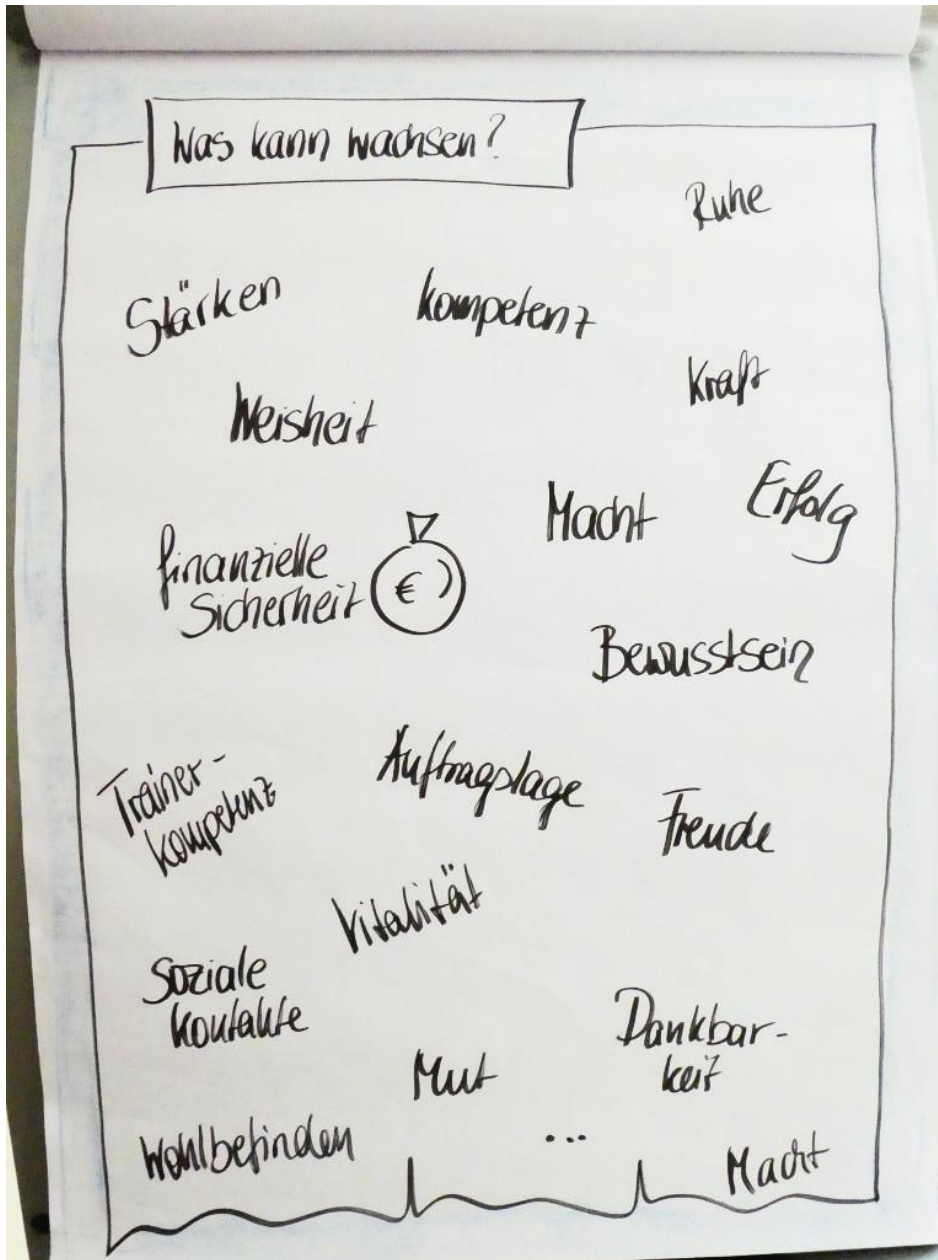 Was kann wachsen?
Ruhe
Stärken
Kompetenz
Kraft
Weisheit
Macht
Erfolg
finanzielle
Sicherheit
€
Bewusstsein
Trainer-
kompetenz
Auftragslage
Freude
Vitalität
Soziale
Kontakte
Dankbar-
keit
Mut
Wohlbefinden
...
Macht